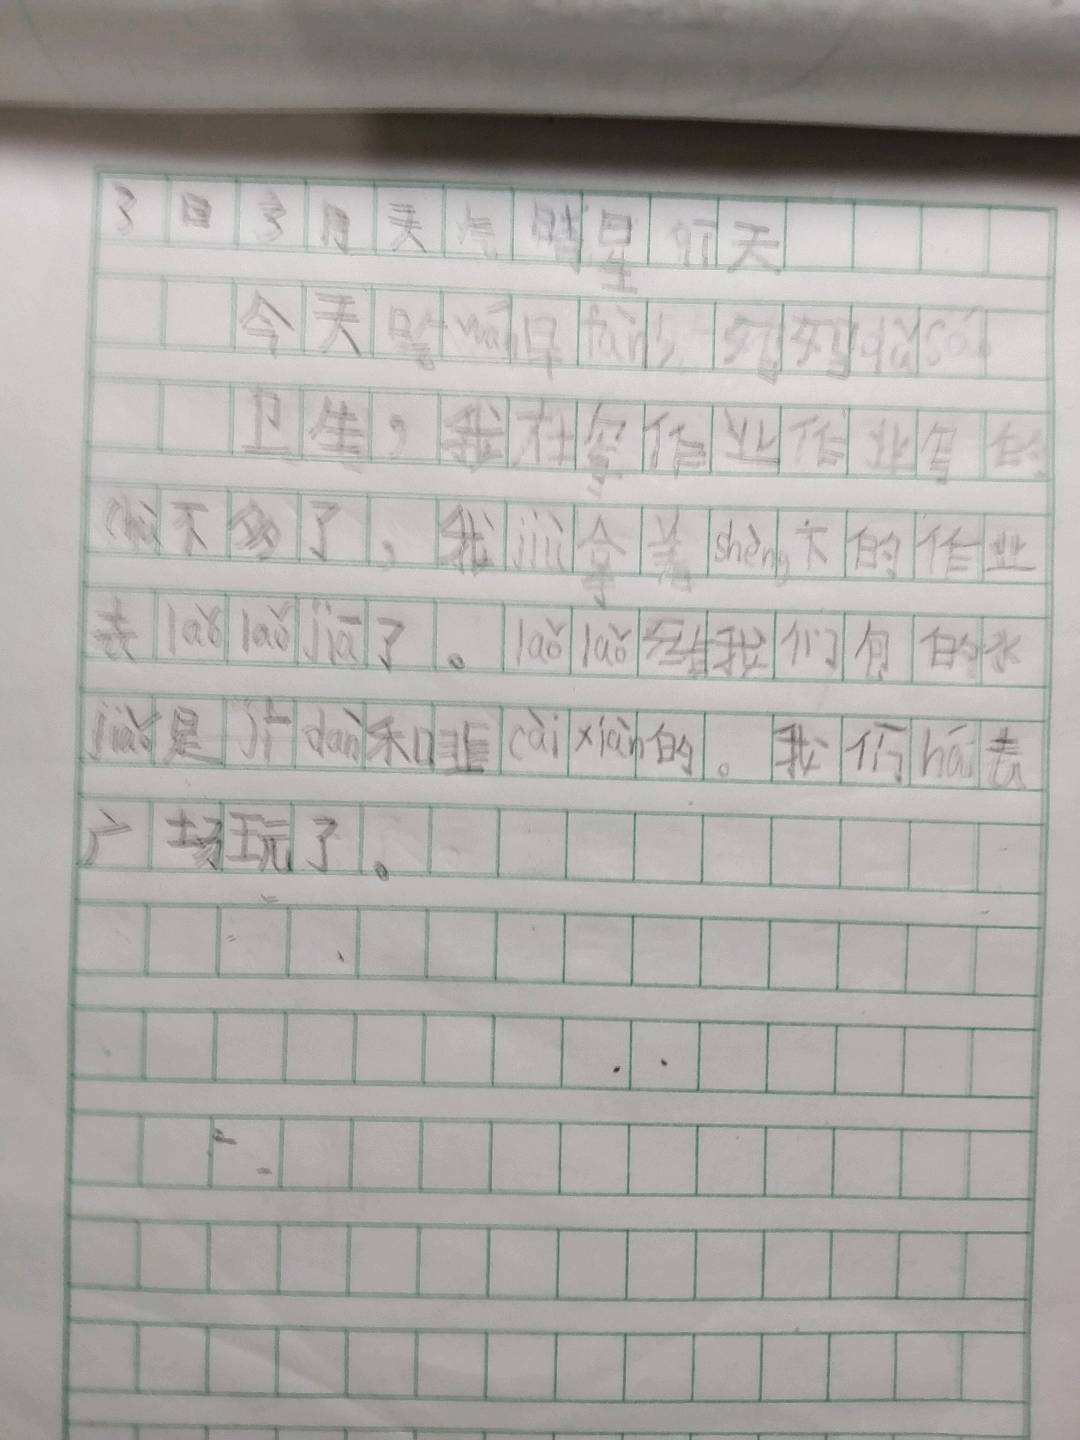 3日3月天气晴星行天
今天吃wǎn早fàn好好dǎsǎo
卫生，我在写作业作业写的
chà不多了，我jiù拿着shèng下的作业
去lǎolǎojiā了。lǎolǎo给我们包的水
jiǎo是jīdàn和韭càixiàn的。我们hái去
广场玩了。